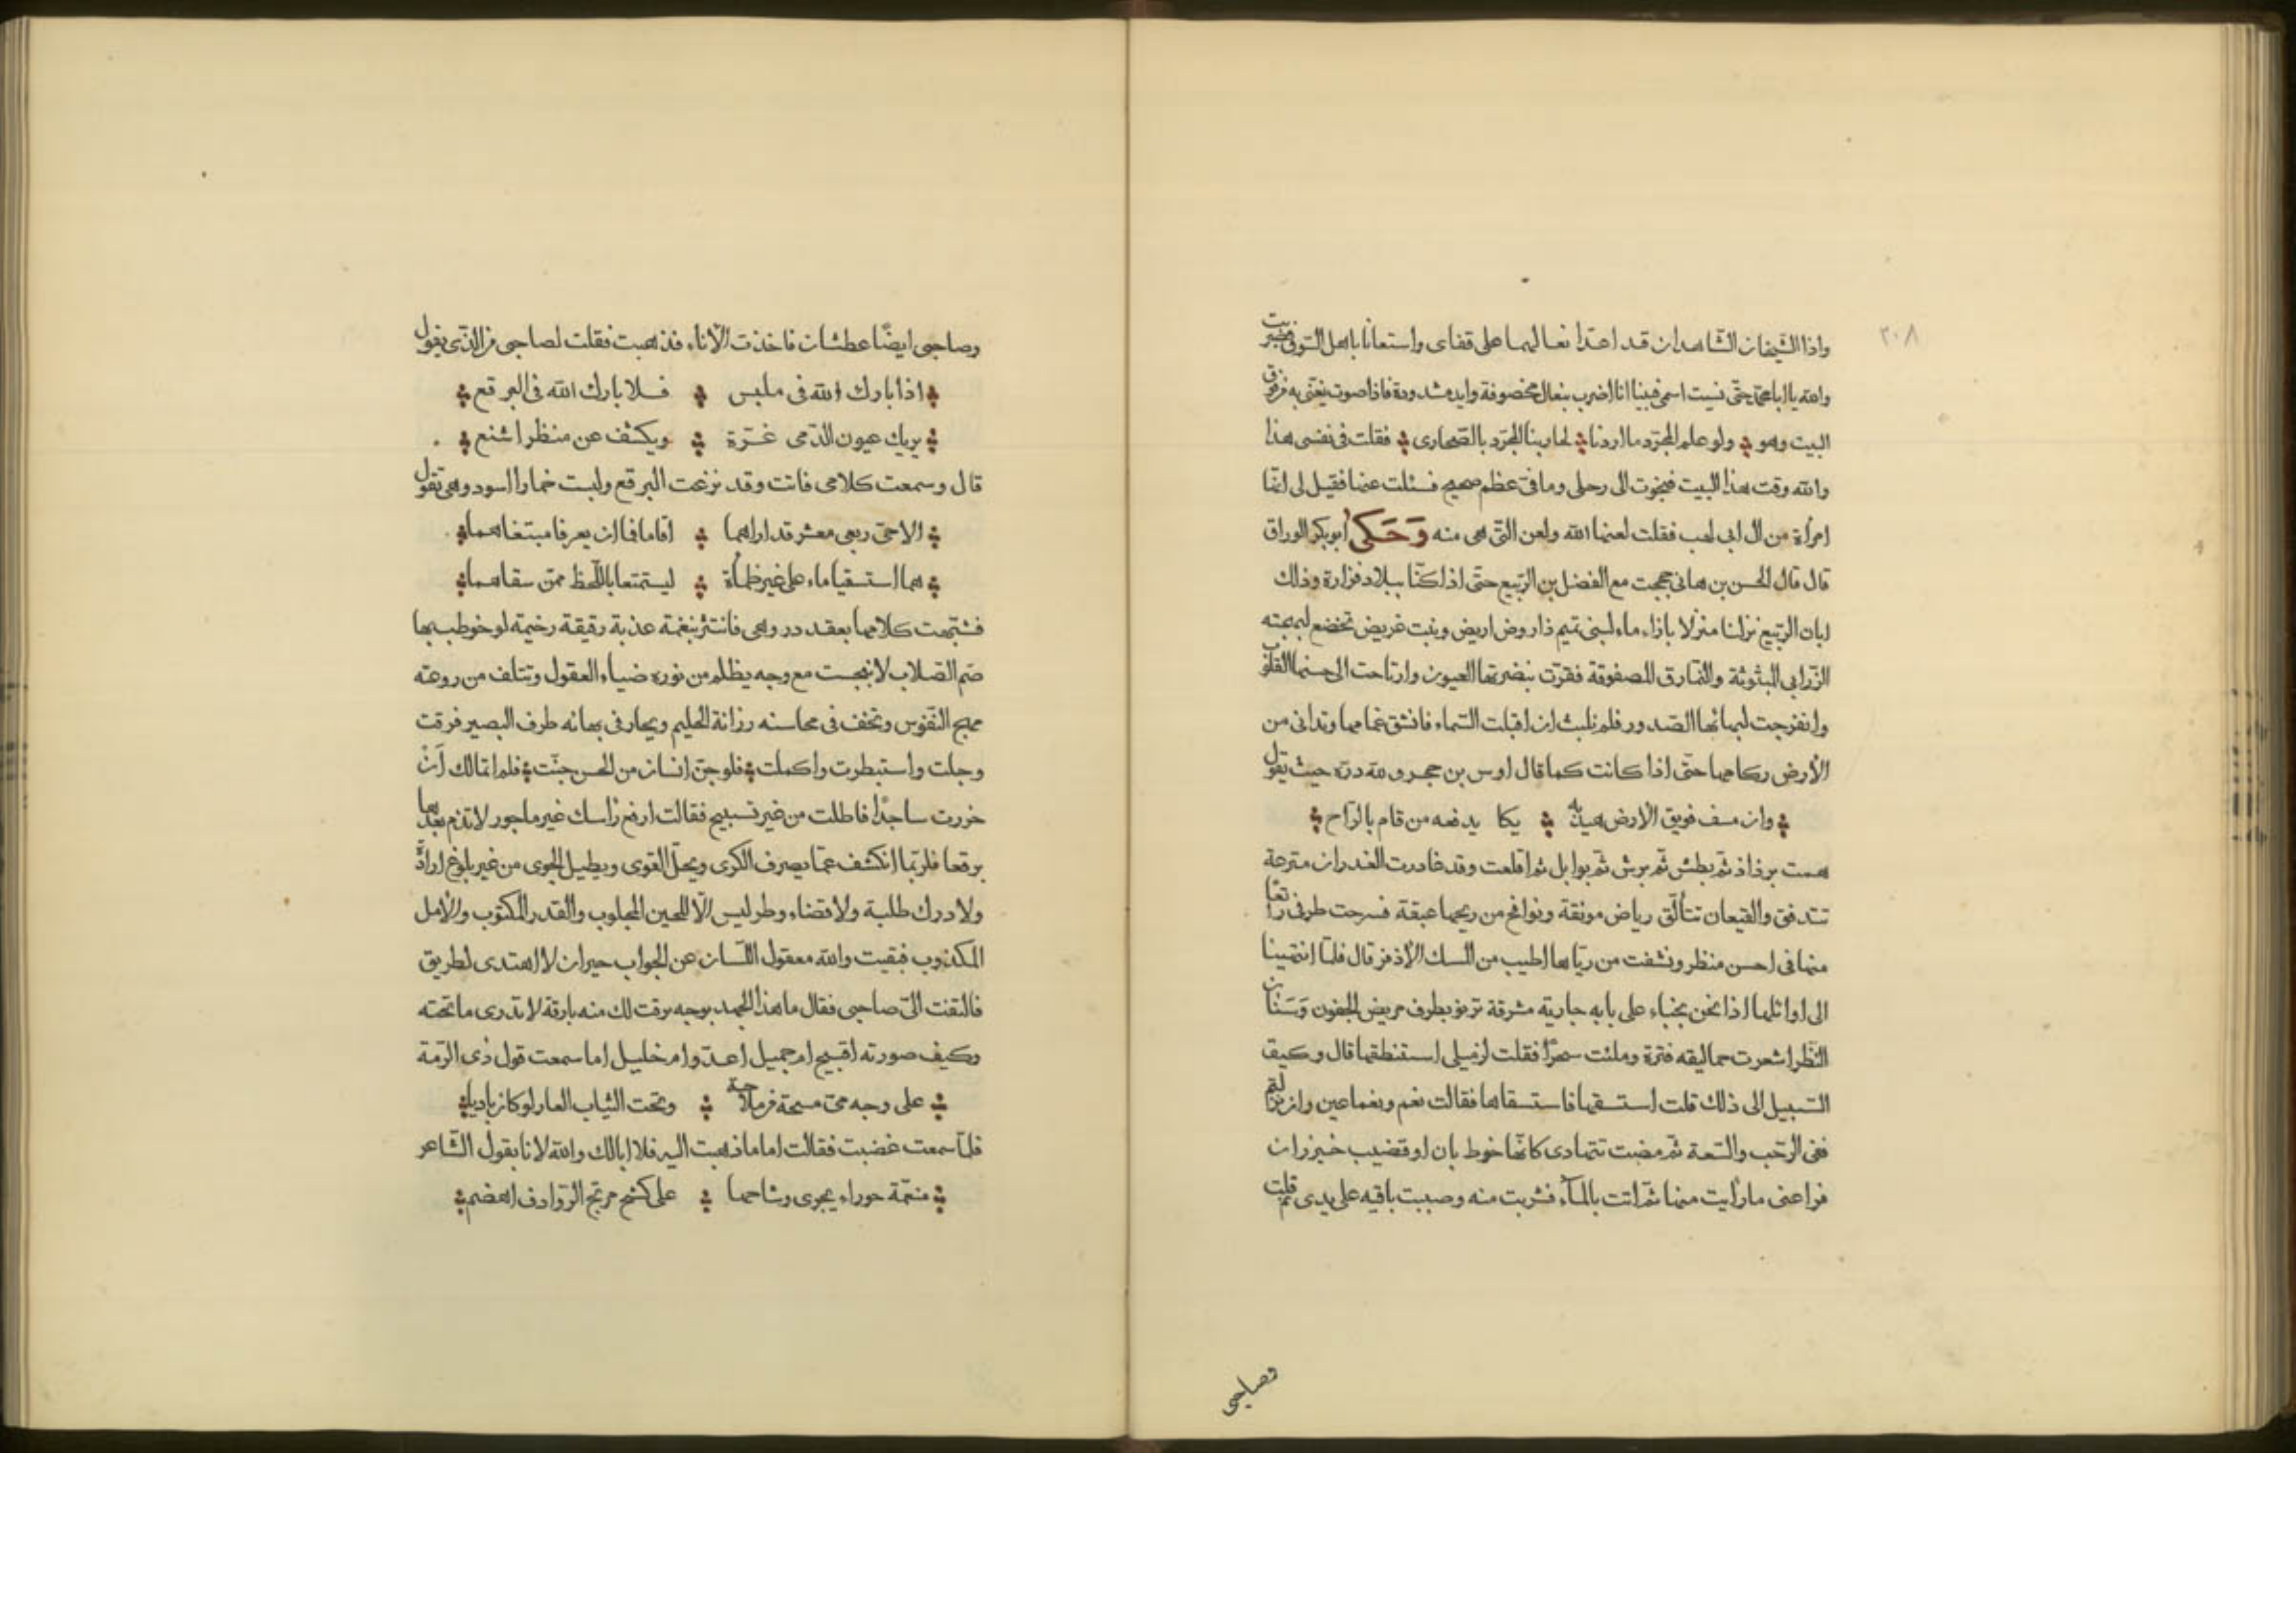 ٢٠٨
واذا الشيخان الشاهدان قد اعدا نعاليهما على قفاى واستعانا باهل السوق فضربت
والله يا ابا محمد حتى نسيت اسمى فبينا انا اضرب بنعال مخصوفة وايد مشدودة فاذا صوت يغنى به من فوق
البيت وهو ولو علم المجرد ما اردنا لحاربنا المجرد بالصحارى فقلت فى نفسى هذا
والله وقت هذا البيت فنجوت الى رحلى وما فى عظم صحيح فسئلت عنها فقيل لى انها
امرأة من ال ابى لهب فقلت لعنها الله ولعن التى هى منه وَحَكى ابو بكر الوراق
قال قال الحسن بن هانى حججت مع الفضل بن الربيع حتى اذا كنا ببلاد فزارة وذلك
ابان الربيع نزلنا منزلا بازاء ماء لبنى تميم ذا روض اريض ونبت غريض تخضع لبهجته
الزرابى المبثوثة والنمارق المصفوفة فقرت بنضرتها العيون وارتاحت الى حسنها القلوب
وانفرجت لبهائها الصدور فلم نلبث ان اقبلت السماء فانشق غمامها وتدانى من
الأرض ركامها حتى اذا كانت كما قال اوس بن حجر ولله دره حيث يقول
وان مسف فويق الارض هيدبه يكا يدفعه من قام بالراح
همت برذاذ ثم بطش ثم برش ثم بوابل ثم اقلعت وقد غادرت الغدران مترعة
تتدفق والقيعان تتألق رياض مونقة ونوافح من ريحها عبقة فسرحت طرفى راتعا
منها فى احسن منظر ونشفت من رياها اطيب من المسك الأذفر قال فلما انتهينا
الى اوائلها اذا نحن بخباء على بابه جارية مشرقة ترنو بطرف مريض الجفون وَسنان
النظر اشعرت حماليقه فترة وملئت سحرًا فقلت لزميلى استنطقها قال وكيف
السبيل الى ذلك قلت استسقها فاستسقاها فقالت نعم ونعما عين وان نزلتم
ففى الرحب والسعة ثم مضت تتهادى كانها خوط بان او قضيب خيزران
فراعنى ما رأيت منها ثم اتت بالماء فشربت منه وصببت باقيه على يدى ثم قلت
وصاحبى
وصاحبى ايضًا عطشان فاخذت الأناء فذهبت فقلت لصاحبى من الذى يقول
اذا بارك الله فى ملبس فلا بارك الله فى البرقع
يريك عيون الدمى غرة ويكشف عن منظر اشنع
قال وسمعت كلامى فاتت وقد نزعت البرقع ولبست خمارا اسود وهى تقول
الا حى ربعى معشر قد اراهما اقاما فما ان يعرفا مبتغاهما
هما استسقيا ماء على غير ظمأة ليستمتعا باللحظ ممن سقاهما
فشبهت كلامها بعقد در وهى فانتثر بنغمة عذبة رقيقة رخيمة لو خوطب بها
صم الصلاب لانبجست مع وجه يظلم من نوره ضياء العقول وتتلف من روعته
مهج النفوس وتخف فى محاسنه رزانة الحليم ويحار فى بهائه طرف البصير فرقت
وجلت واستبطرت واكملت فلو جن انسان من الحسن جنت فلم اتمالك اَنْ
خررت ساجدًا فاطلت من غير تسبيح فقالت ارفع رأسك غير ماجور لا تذم بعدها
برقعا فلربما انكشف عما يصرف الكرى ويحل القوى ويطيل الجوى من غير بلوغ ارادة
ولا درك طلبة ولا قضاء وطر ليس الا للحين المجلوب والقدر المكتوب والأمل
المكذوب فبقيت والله معقول اللسان عن الجواب حيران لا اهتدى لطريق
فالتفت الى صاحبى فقال ما هذا الجهد بوجه برقت لك منه بارقة لا تدرى ما تحته
وكيف صورته اقبيح ام جميل اعدو ام خليل اما سمعت قول ذى الرمة
على وجه مى مسحة من ملاحة وتحت الثياب العار لو كان باديا
فلما سمعت غضبت فقالت اما ما ذهبت اليه فلا ابالك والله لانا بقول الشاعر
منعمة حوراء يجرى وشاحها على كشح مرتج الروادف اهضم